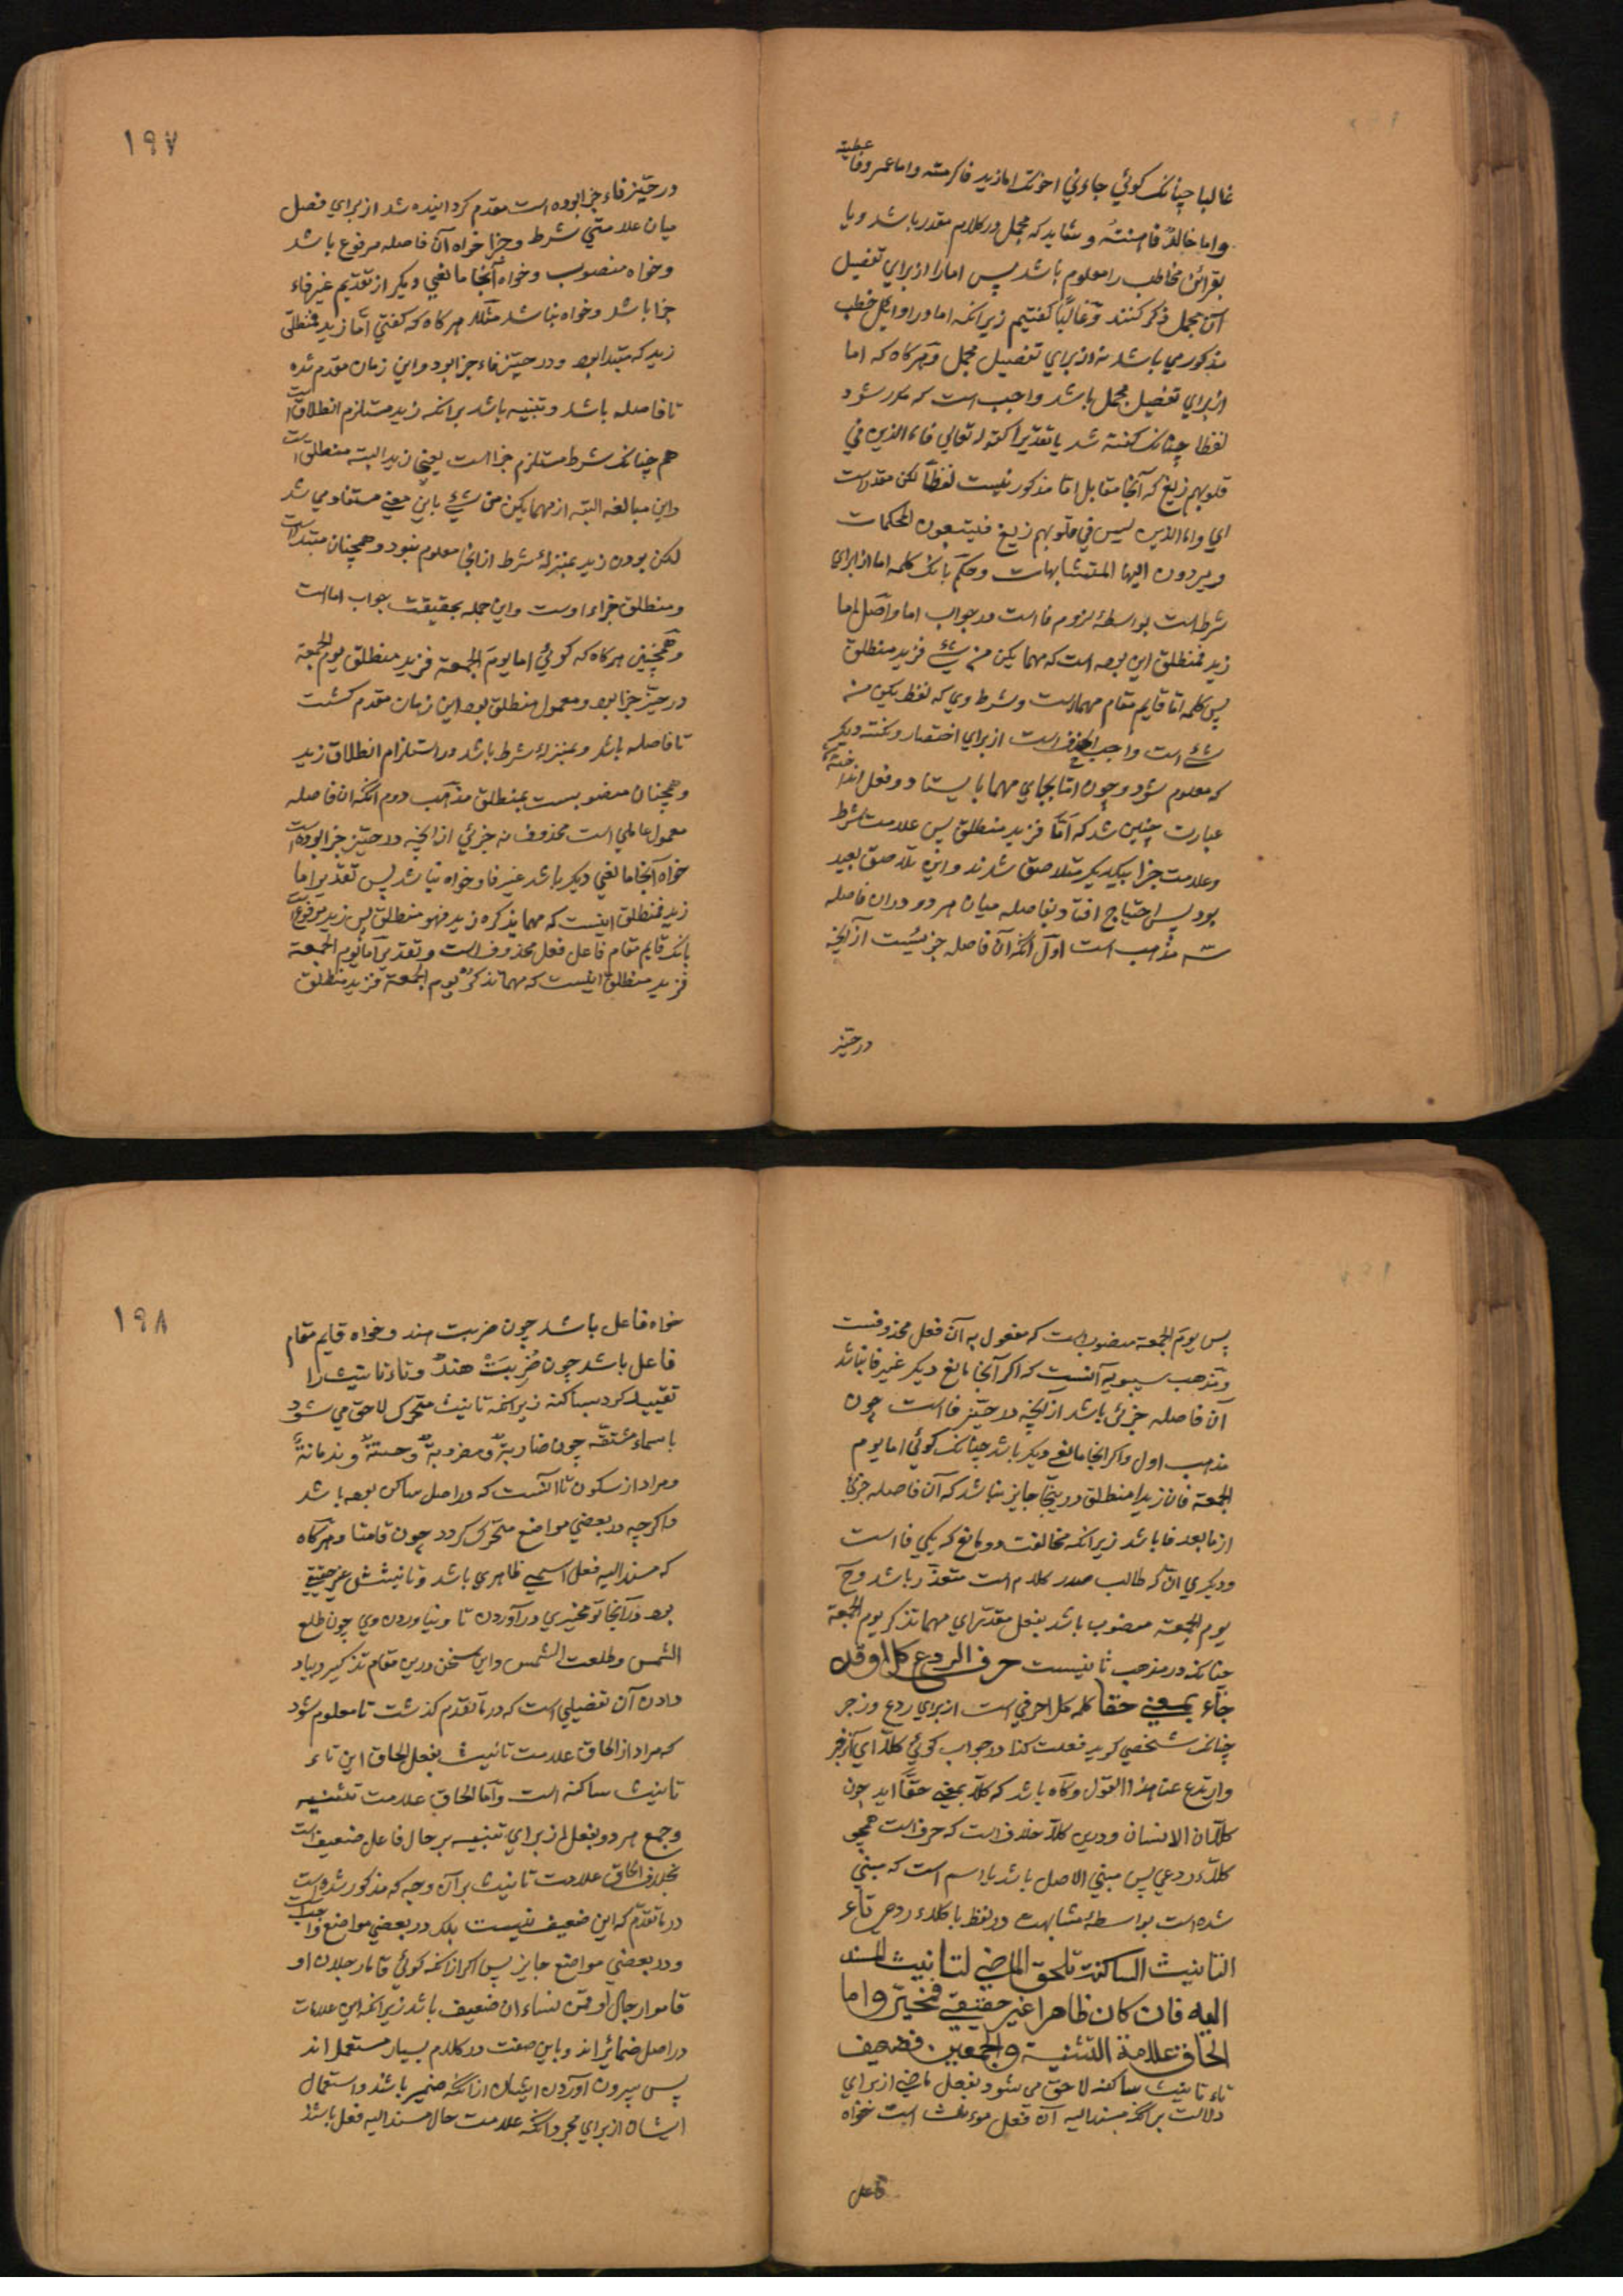 غالبا چنانک کوئي جاءني اخوتک اما زید فاکرمته واما عمرو فاعطیته
واما خالد فاهنتهُ و شاید که مجمل در کلام مقدر باشد و یا
بقرائن مخاطب را معلوم باشد پس اما را از برای تفصیل
آن مجمل ذکر کنند و غالبًا کفتیم زیرانکه اما در اوایل خطب
مذکور می باشد نه از برای تفصیل مجمل و هرکاه که اما
از برای تفصیل مجمل باشد واجب است که مکرر شود
لفظا چنانک کفته شد یا تقدیرا کقوله تعالی فاما الذین في
قلوبهم زیغ که آنجا مقابل اما مذکور نیست لفظًا لکن مقدر است
ای واما الذین لیس في قلوبهم زیغ فیتبعون المحکمات
ویردون الیها المتشابهات و حکم بانک کلمه اما از برای
شرط است بواسطهٔ لزوم فا است در جواب اما و اصل اما
زید فمنطلق این بوده است که مهما یکن من شئ فزید منطلق
پس کلمه اما قایم مقام مهما است و شرط وی که لفظ یکن من
شئ است واجب الحذف است از برای اختصار و نکته دیکر
که معلوم شود و چون اما بجای مهما بایستاد و فعل انداخته
عبارت چنین شد که اَمّا فزید منطلق پس علامت شرط
و علامت جزا بیکدیکر متلاصق شدند و این تلاصق بعید
بود پس احتیاج افتاد بفاصله میان هر دو و در ان فاصله
سه مذهب است اول آنکه آن فاصله جزئیست از آنچه
در حیّز
۱۹۷
در حیّز فاء جزا بوده است مقدم کردانیده شد از برای فصل
میان علامتي شرط و جزا خواه آن فاصله مرفوع باشد
و خواه منصوب و خواه آنجا مانعي دیکر از تقدیم غیر فاء
جزا باشد و خواه نباشد مثلا هرکاه که کفتي اما زید فمنطلق
زید که مبتدا بود و در حیّز فاء جزا بود و این زمان مقدم شده
تا فاصله باشد و تنبیه باشد برانکه زید مستلزم انطلاق است
هم چنانک شرط مستلزم جزا است یعنی زید البته منطلق است
و این مبالغه البته از مهما یکن من شئ باین معنی مستفاد می شد
لکن بودن زید بمنزلهٔ شرط از انجا معلوم نبود و همچنان مبتدا است
و منطلق جزاء اوست و این جمله بحقیقت جواب اما است
و همچنین هرکاه که کوئي اما یوم الجمعة فزید منطلق یوم الجمعة
در حیّز جزا بود و معمول منطلق بود این زمان مقدم کشت
تا فاصله باشد و بمنزلهٔ شرط باشد در استلزام انطلاق زید
و همچنان منصوبست بمنطلق مذهب دوم آنکه ان فاصله
معمول عاملي است محذوف نه جزئي از آنچه در حیّز جزا بوده است
خواه آنجا مانعي دیکر باشد غیر فا و خواه نباشد پس تقدیر اما
زید فمنطلق اینست که مهما یذکر زید فهو منطلق پس زید مرفوع است
بانک قایم مقام فاعل فعل محذوف است و تقدیر اَما یوم الجمعة
فزید منطلق اینست که مهما تذکر یوم الجمعة فزید منطلق
پس یوم الجمعة منصوب است که مفعول به آن فعل محذوفست
و مذهب سیبویه آنست که اکر آنجا مانع دیکر غیر فا نباشد
آن فاصله جزئ باشد از آنچه در حیّز فا است چون
مذهب اول و اکر انجا مانعی دیکر باشد چنانک کوئي اما یوم
الجمعة فان زیدا منطلق در ینجا جایز نباشد که آن فاصله جزئ
از ما بعد فا باشد زیرانکه مخالفت دو مانع که یکي فا است
و دیکری انّ که طالب صدر کلام است متعذّر باشد و ح
یوم الجمعة منصوب باشد بفعل مقدر ای مهما تذکر یوم الجمعة
چنانکه در مذهب ثانیست حرف الردع کلا وقد
جاء بمعنی حقا کلمه کلا حرفي است از برای ردع و زجر
چنانک شخصي کوید فعلت کذا در جواب کوئي کلا ای انزجر
وارتدع عن هذا القول و کاه باشد که کلّا بمعنی حقًّا اید چون
کلّا ان الانسان و درین کلّا خلاف است که حرف است همچو
کلّاء ردعي پس مبني الاصل باشد یا اسم است که مبني
شده است بواسطهٔ مشابهت در لفظ با کلاء ردعي تاء
التانیث الساکنة تلحق الماضي لتانیث المسند
الیه فان کان ظاهرا غیر حقیقي فمخیّر واما
الحاق علامة التثنیة والجمعین فضعیف
تاء تانیث ساکنه لاحق می شود بفعل ماضی از برای
دلالت برانکه مسند الیه آن فعل مونث است خواه
فاعل
۱۹۸
خواه فاعل باشد چون ضربت هند و خواه قایم مقام
فاعل باشد چون ضُرِبَتْ هندٌ و تاء تانیث را
تقیید کرد بساکنه زیرانکه تانیث متحرک لاحق می شود
باسماء مشتقه چون ضاربةٌ و مضروبةٌ و حسنةٌ و ندمانةٌ
و مراد از سکون تا آنست که در اصل ساکن بوده باشد
و اکرچه در بعضي مواضع متحرک کردد چون قامتا و هرکاه
که مسند الیه فعل اسمي ظاهری باشد و تانیثش غیر حقیقي
بود در آنجا تو مخیّری در آوردن تا و نیاوردن وی چون طلع
الشمس و طلعت الشمس و این سخن درین مقام تذکیر و یاد
دادن آن تفصیلي است که در ما تقدم کذشت تا معلوم شود
که مراد از الحاق علامت تانیث بفعل الحاق این تاء
تانیث ساکنه است و اما الحاق علامت تثنیه
و جمع هر دو بفعل از برای تنبیه بر حال فاعل ضعیف است
بخلاف الحاق علامت تانیث بر آن وجه که مذکور شده است
در ما تقدّم که این ضعیف نیست بلکه در بعضي مواضع واجب است
و در بعضي مواضع جایز پس اکر ازانکه کوئي قاما رجلان او
قاموا رجال او قمن نساء ان ضعیف باشد زیرانکه این علامات
در اصل ضمائر اند و باین صفت در کلام بسیار مستعمل اند
پس بیرون آوردن ایشان ازانکه ضمیر باشند و استعمال
ایشان از برای مجرد انکه علامت حال مسند الیه فعل باشند